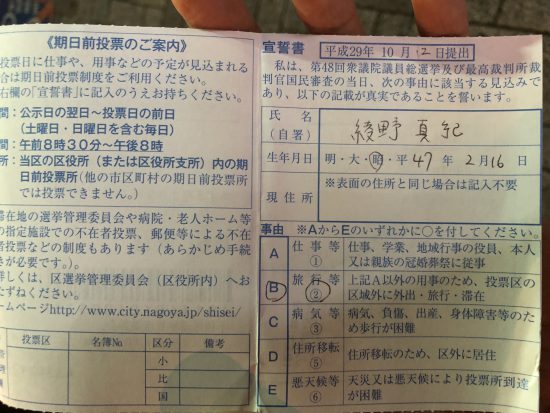 《期日前投票のご案内》
投票日に仕事や、用事などの予定が見込まれる
合は期日前投票制度をご利用ください。
右欄の「宣誓書」に記入のうえお持ちください。
間：公示日の翌日～投票日の前日
（土曜日・日曜日を含む毎日）
間：午前8時30分～午後8時
所：当区の区役所（または区役所支所）内の期
日前投票所（他の市区町村の期日前投票所
では投票できません。）
滞在地の選挙管理委員会や病院・老人ホーム等
の指定施設での不在者投票、郵便等による不在
者投票などの制度もあります（あらかじめ手続
きが必要です。）。
詳しくは、区選挙管理委員会（区役所内）へお
たずねください。
ームページhttp://www.city.nagoya.jp/shisei/
投票区 名簿No 区分 備考
小
比
国
宣誓書 平成29年10月12日提出
私は、第48回衆議院議員総選挙及び最高裁判所裁
判官国民審査の当日、次の事由に該当する見込みで
あり、以下の記載が真実であることを誓います。
氏名
（自署）
綾野真紀
生年月日 明・大・昭・平 47年2月16日
現住所 ※表面の住所と同じ場合は記入不要
事由 ※AからEのいずれかに○を付してください。
A 仕事等 ① 仕事、学業、地域行事の役員、本人
又は親族の冠婚葬祭に従事
B 旅行等 ② 上記A以外の用事のため、投票区の
区域外に外出・旅行・滞在
C 病気等 ③ 病気、負傷、出産、身体障害等のた
め歩行が困難
D 住所移転 ⑤ 住所移転のため、区外に居住
E 悪天候等 ⑥ 天災又は悪天候により投票所到達
が困難